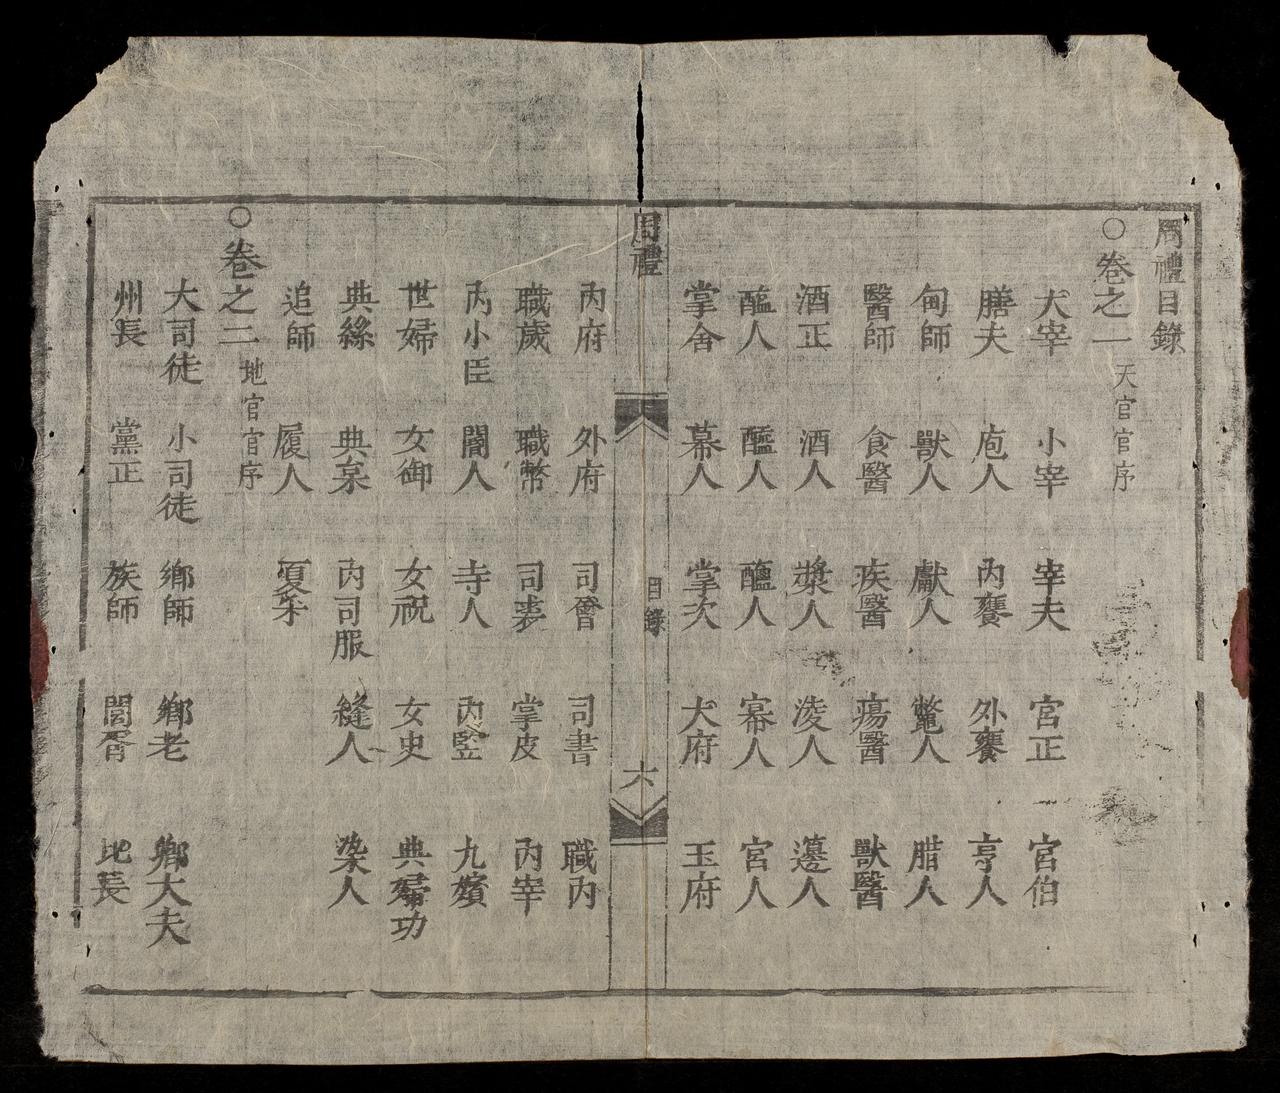 周禮目錄
○卷之一 天官官序
大宰 小宰 宰夫 宮正 宮伯
膳夫 庖人 內饔 外饔 亨人
甸師 獸人 䱷人 鼈人 腊人
醫師 食醫 疾醫 瘍醫 獸醫
酒正 酒人 漿人 凌人 籩人
醢人 醯人 鹽人 冪人 宮人
掌舍 幕人 掌次 大府 玉府
周禮 目錄 六
內府 外府 司會 司書 職內
職歲 職幣 司裘 掌皮 內宰
內小臣 閽人 寺人 內竪 九嬪
世婦 女御 女祝 女史 典婦功
典絲 典枲 內司服 縫人 染人
追師 履人 夏采
○卷之二 地官官序
大司徒 小司徒 鄉師 鄉老 鄉大夫
州長 黨正 族師 閭胥 比長